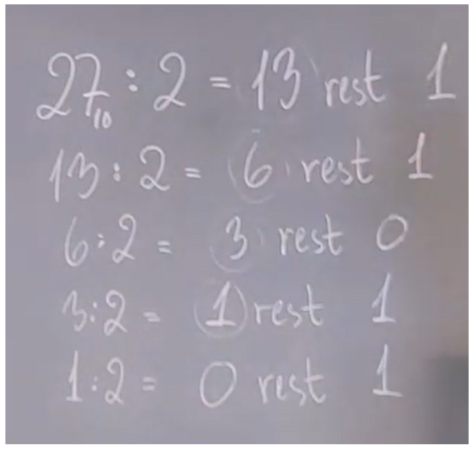 27₁₀ : 2 = 13 rest 1
13 : 2 = 6 rest 1
6 : 2 = 3 rest 0
3 : 2 = 1 rest 1
1 : 2 = 0 rest 1